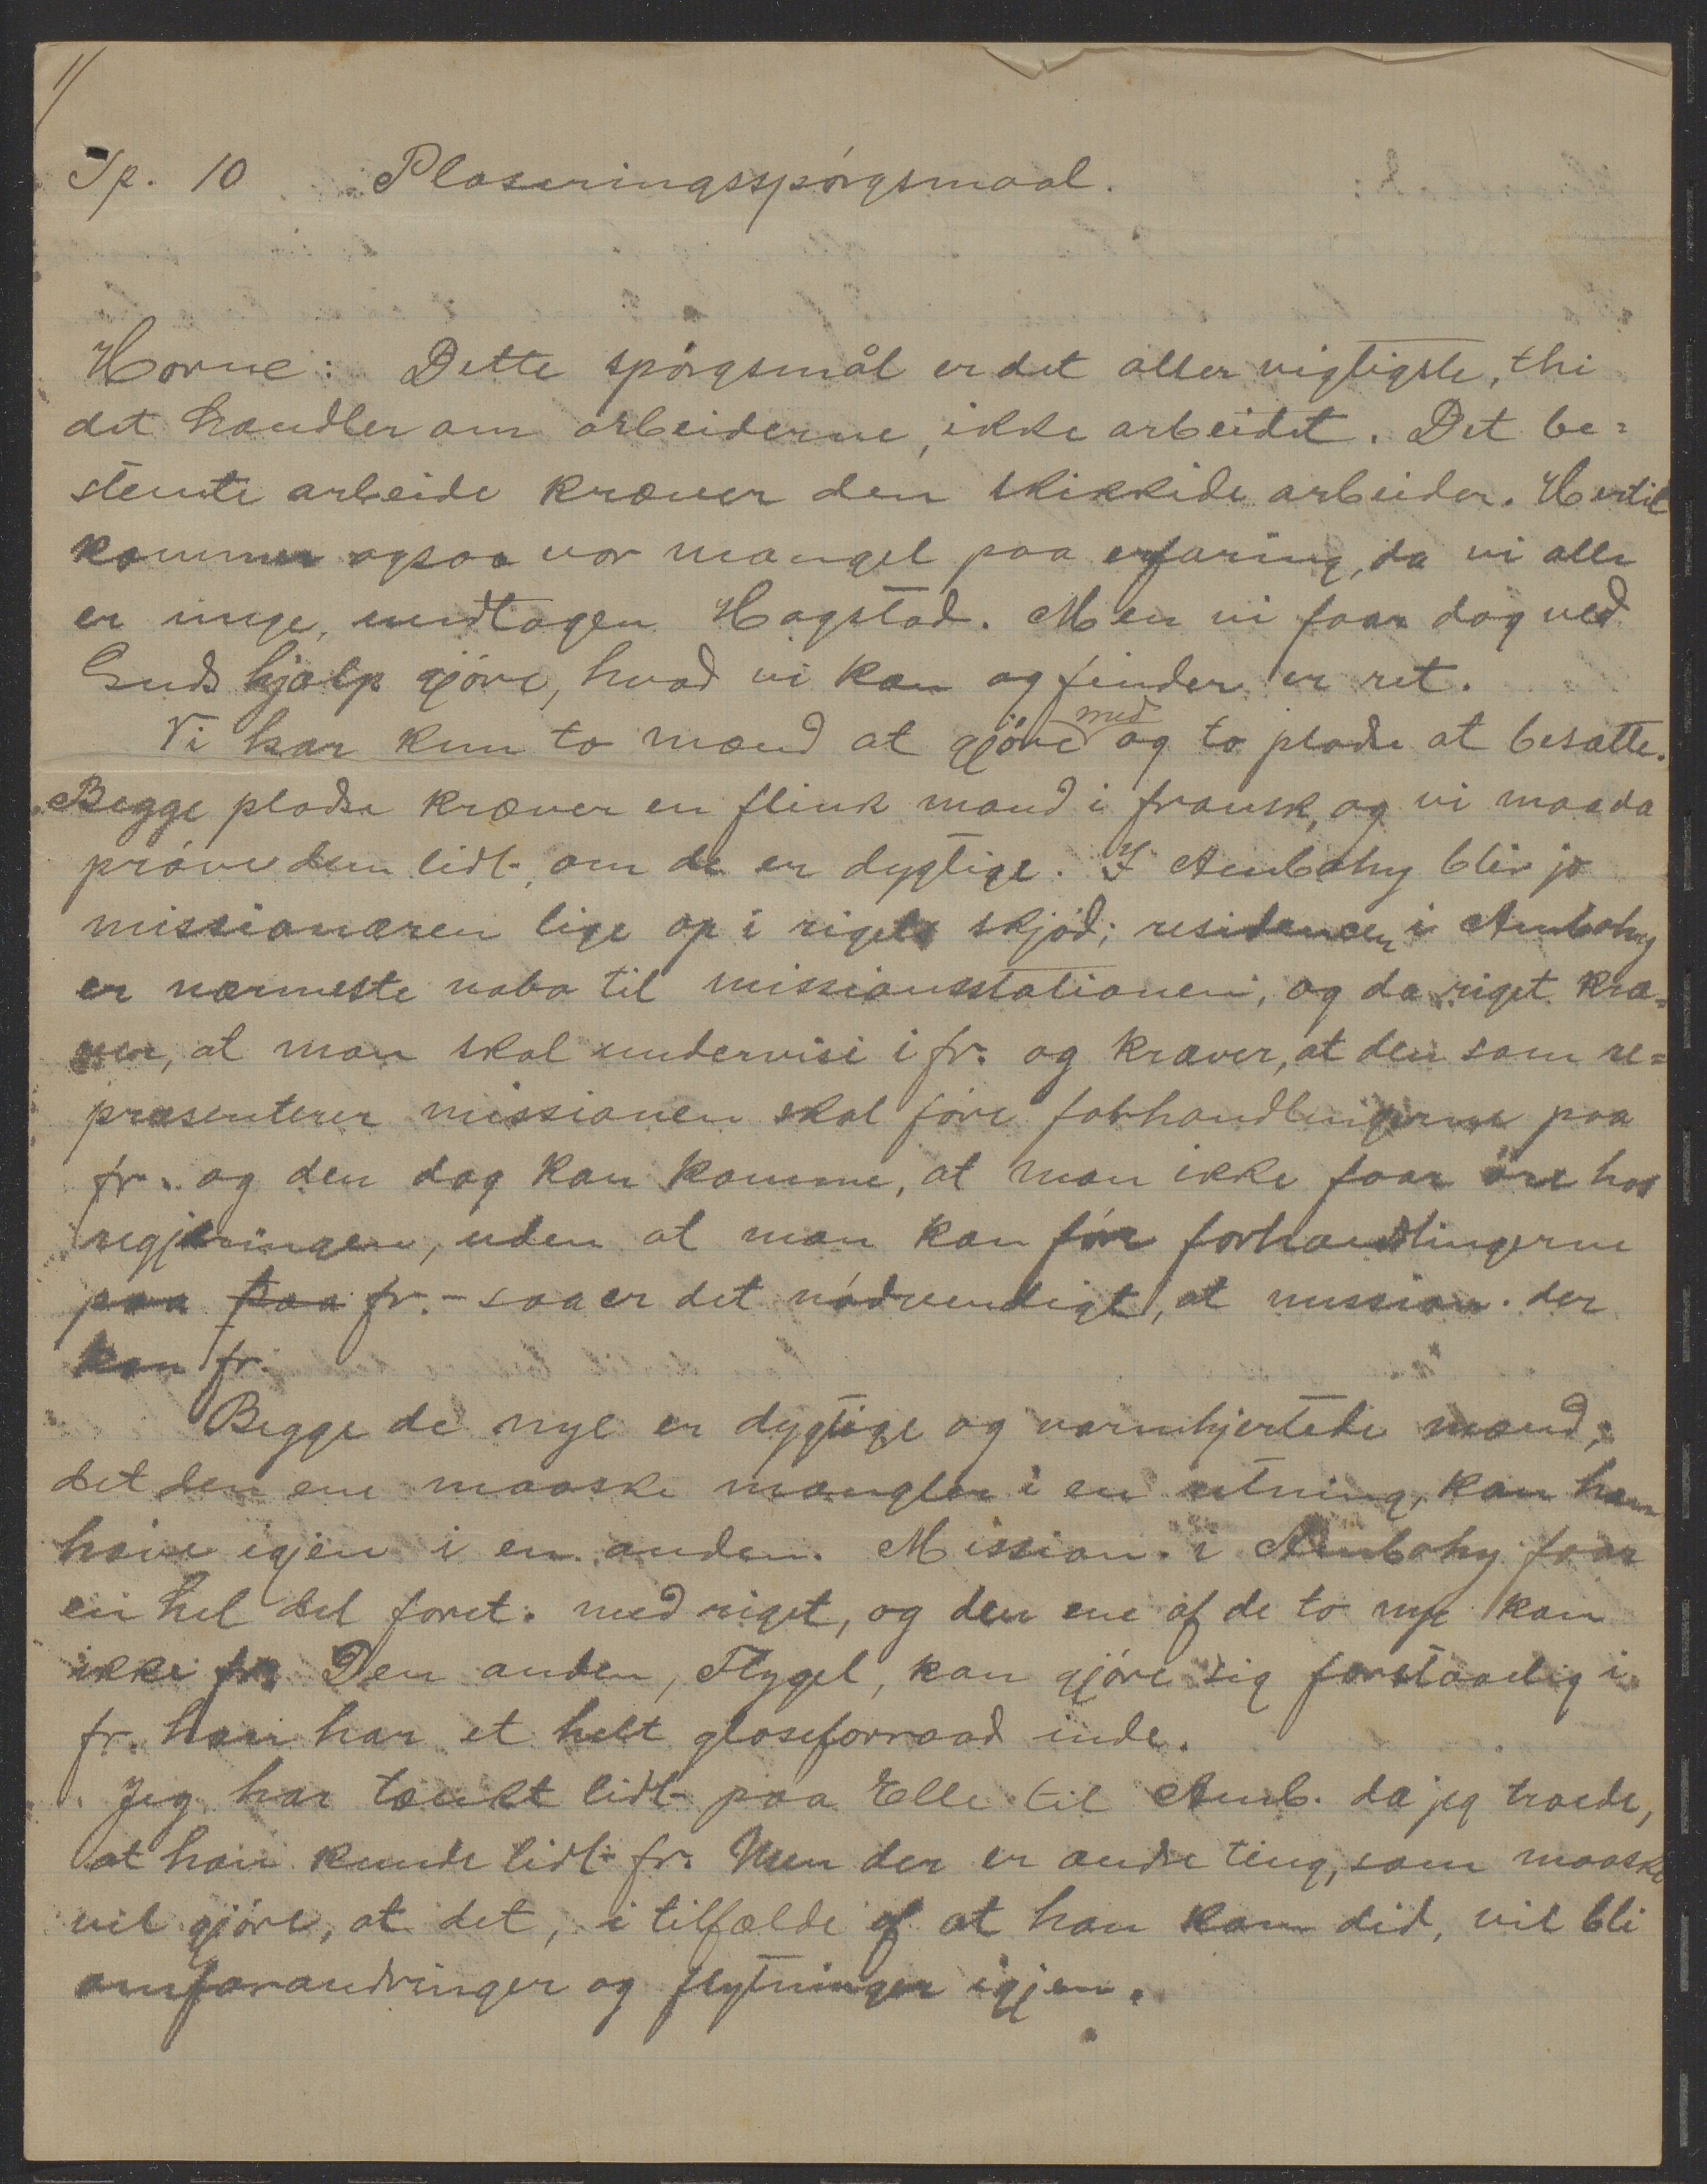 1/
Sp. 10 Placeringsspørgsmaal.
Horne: Dette spørgsmål er det aller vigtigste, thi
det handler om arbeiderne, ikke arbeidet. Det be=
stemte arbeide kræver den skikkede arbeider. Hertil
kommer ogsaa vor mangel paa erfaring, da vi alle
er unge, undtagen Hagstad. Men vi faar dog ved
Guds hjælp gjøre, hvad vi kan og finder er ret.
Vi har kun to mænd at gjøre med og to pladse at besætte.
Begge pladse kræver en flink mand i fransk, og vi maa da
prøve dem lidt, om de er dygtige. I Ambohy blir jo
missionæren lige op i rigets skjød; residencen i Ambohy
er nærmeste nabo til missionsstationen, og da riget kræ=
ver, at man skal undervise i fr. og kræver, at den som re=
præsenterer missionen skal føre forhandlingerne paa
fr. og den dag kan komme, at man ikke faar øre hos
regjeringen, uden at man kan føre forhandlingerne
paa paa fr. - saa er det nødvendigt, at mission. der
kan fr.
Begge de nye er dygtige og varmhjertede mænd;
det den ene maaske mangler i en retning, kan han
have igjen i en anden. Mission. i Ambohy faar
en hel del foret. med riget, og den ene af de to nye kan
ikke fr. Den anden, Flygel, kan gjøre sig forstaaelig i
fr. han har et helt gloseforraad inde.
Jeg har tænkt lidt paa Elle til Amb. da jeg troede,
at han kunde lidt fr. Men der er andre ting, som maaske
vil gjøre, at det, i tilfælde af at han kom did, vil bli
omforandringer og flytninger igjen.